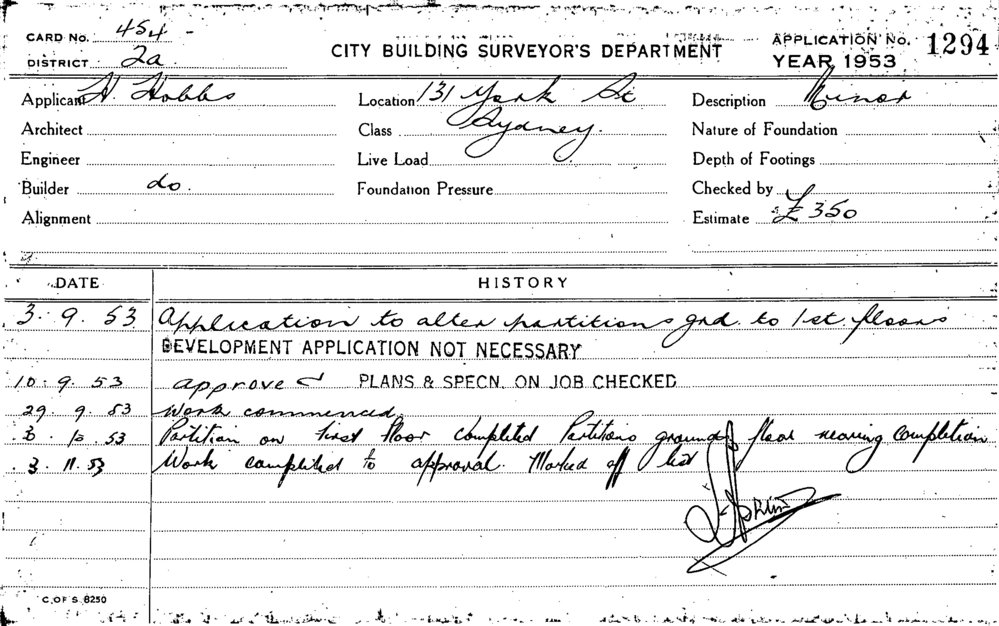 CARD NO. 454 -
DISTRICT 2a
CITY BUILDING SURVEYOR'S DEPARTMENT
APPLICATION NO. 1294
YEAR 1953
Applicant H. Hobbs
Location 131 York St
Description Minor
Architect
Class Sydney.
Nature of Foundation
Engineer
Live Load
Depth of Footings
Builder do.
Foundation Pressure
Checked by
Alignment
Estimate £350
DATE
HISTORY
3. 9. 53 Application to alter partitions grd. to 1st floors
DEVELOPMENT APPLICATION NOT NECESSARY
10. 9. 53 approved PLANS & SPECN. ON JOB CHECKED
29. 9. 53 Work commenced
10. 53 Partition on first floor completed Partitions ground floor nearing completion
3. 11. 53 Work completed to approval. Marked off list
C. OF S. 8250